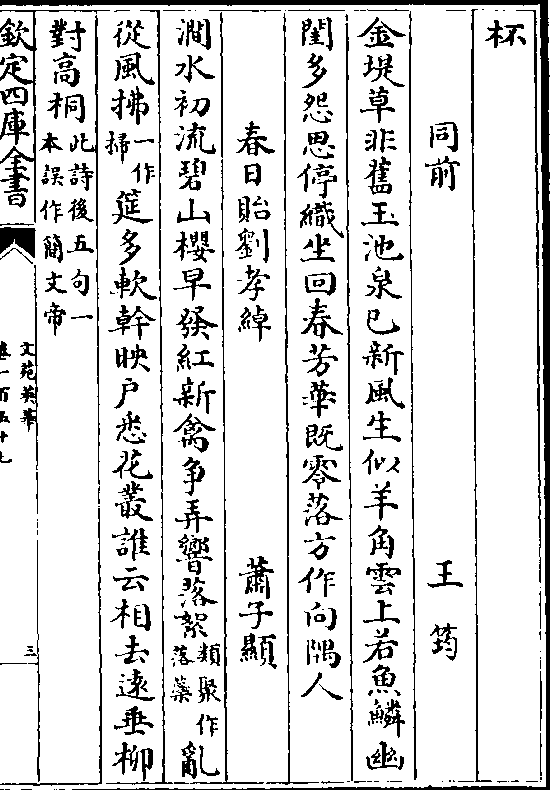 杯
同前 王筠
金堤草非舊玉池泉已新風生似羊角雲上若魚鱗幽
閨多怨思停織坐回春芳華既零落方作向隅人
春日貽劉孝綽 蕭子顯
澗水初流碧山櫻早發紅新禽争弄響落絮類聚作落蘂亂
從風拂一作掃筵多軟幹映户悉花叢誰云相去遠垂柳
對高桐此詩後五句一本誤作簡文帝
欽定四庫全書
文苑英華
卷一百五十七
三